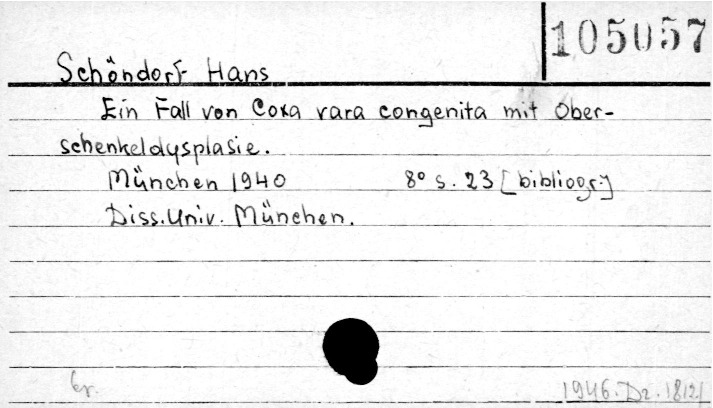 105057
Schöndorf Hans
Ein Fall von Coxa vara congenita mit Ober-
schenkeldysplasie.
München 1940 8° s. 23 [bibliogr.]
Diss. Univ. München.
kr.
1946. Dz. 1812/